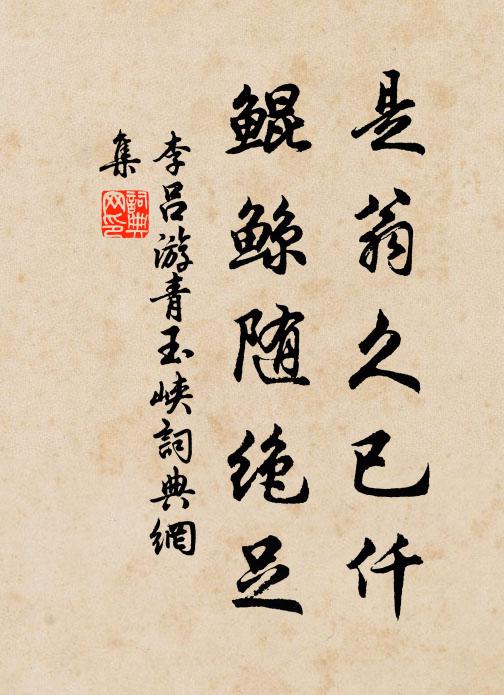 是翁久已仟
鲲鲸随绝足
李吕游青玉峡詞典網
集
詞典网印